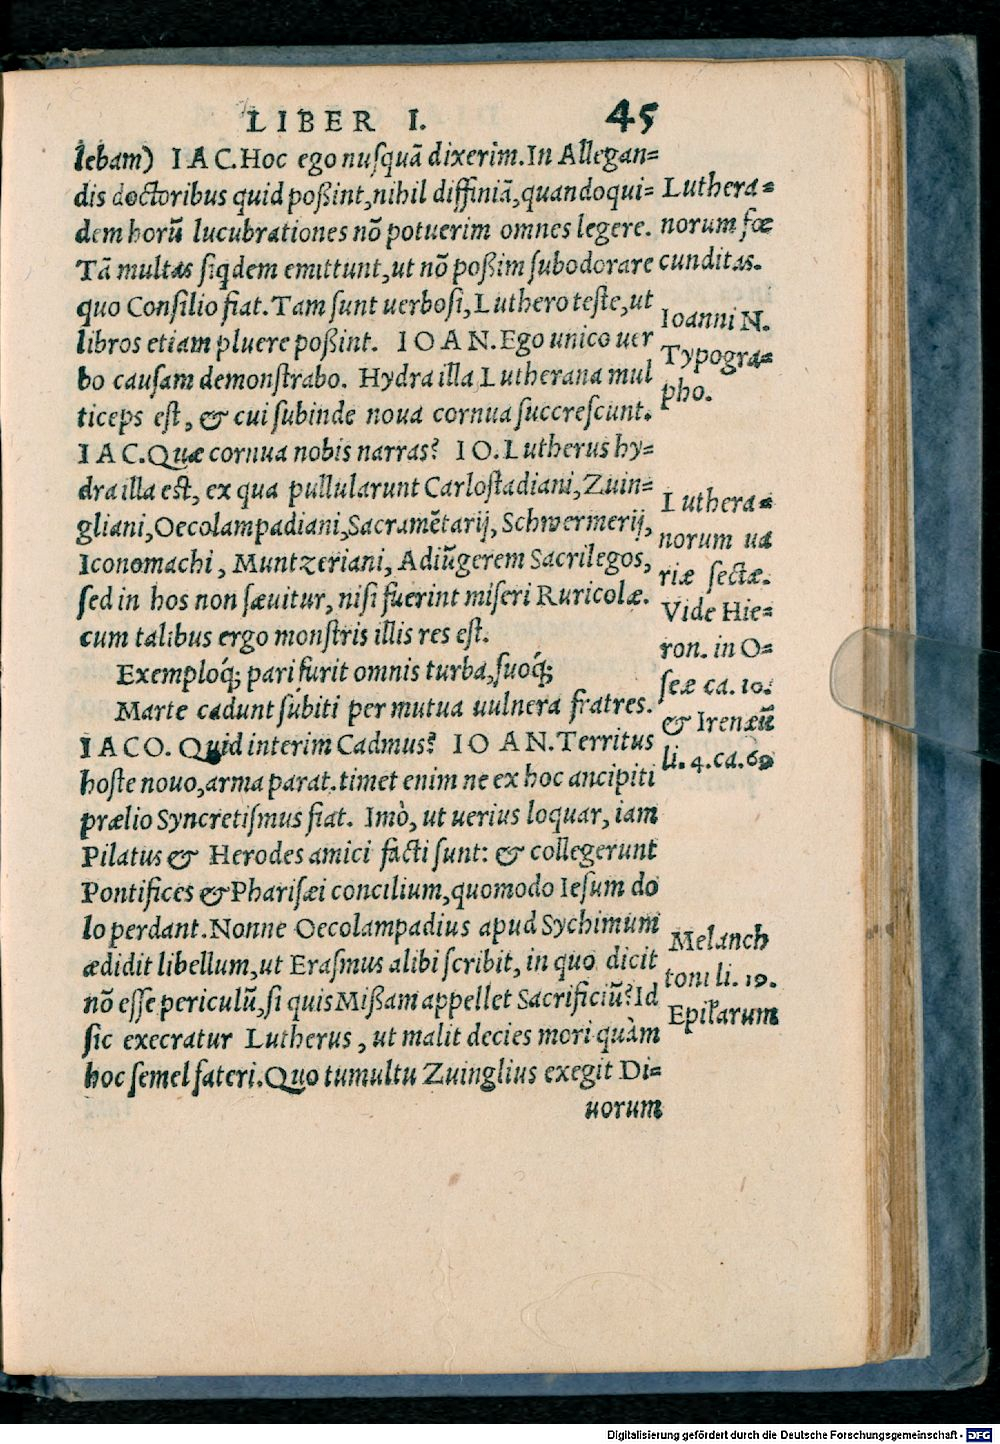 LIBER I. 45
lebam) IAC. Hoc ego nusquã dixerim. In Allegan=
dis doctoribus quid poßint, nihil diffiniã, quandoqui=
dem horũ lucubrationes nõ potuerim omnes legere.
Tã multas siqdem emittunt, ut nõ poßim subodorare
quo Consilio fiat. Tam sunt uerbosi, Luthero teste, ut
libros etiam pluere poßint. IOAN. Ego unico uer
bo causam demonstrabo. Hydra illa Lutherana mul
ticeps est, & cui subinde noua cornua succrescunt.
IAC. Quæ cornua nobis narras? IO. Lutherus hy=
dra illa est, ex qua pullularunt Carlostadiani, Zuin=
gliani, Oecolampadiani, Sacramẽtarij, Schwermerij,
Iconomachi, Muntzeriani, Adiũgerem Sacrilegos,
sed in hos non sæuitur, nisi fuerint miseri Ruricolæ.
cum talibus ergo monstris illis res est.
Exemploq́; pari furit omnis turba, suoq́;
Marte cadunt subiti per mutua uulnera fratres.
IACO. Quid interim Cadmus? IOAN. Territus
hoste nouo, arma parat. timet enim ne ex hoc ancipiti
prælio Syncretismus fiat. Imò, ut uerius loquar, iam
Pilatus & Herodes amici facti sunt: & collegerunt
Pontifices & Pharisæi concilium, quomodo Iesum do
lo perdant. Nonne Oecolampadius apud Sychimum
ædidit libellum, ut Erasmus alibi scribit, in quo dicit
nõ esse periculũ, si quis Mißam appellet Sacrificiũ? Id
sic execratur Lutherus, ut malit decies mori quàm
hoc semel fateri. Quo tumultu Zuinglius exegit Di=
uorum
Luthera=
norum fœ
cunditas.
Ioanni N.
Typogra=
pho.
Luthera=
norum ua
riæ sectæ.
Vide Hie=
ron. in O=
seæ ca. 10.
& Irenæũ
li. 4. ca. 69
Melanch
toni li. 19.
Epilarum
Digitalisierung gefördert durch die Deutsche Forschungsgemeinschaft - DFG